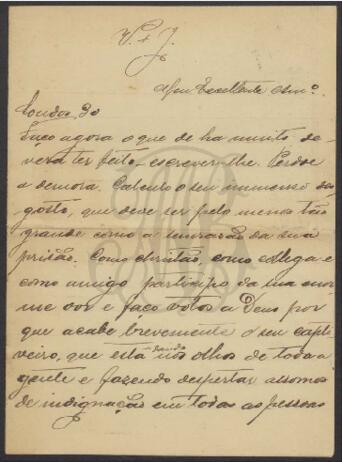 V. + J.
Meu Excellente Am.º
Louda, 30
Faço agora o que de ha muito de-
vera ter feito, escrever-lhe. Perdoe
a demora. Calculo o seu immenso des-
gosto, que deve ser pelo menos tão
grande como a semrasão da sua
prisão. Como christão, como collega e
como amigo participo da sua enor
me dor e faço votos a Deus por
que acabe brevemente o seu capti-
veiro, que está dando nos olhos de toda a
gente e fazendo despertar assomos
de indignação em todas as pessoas